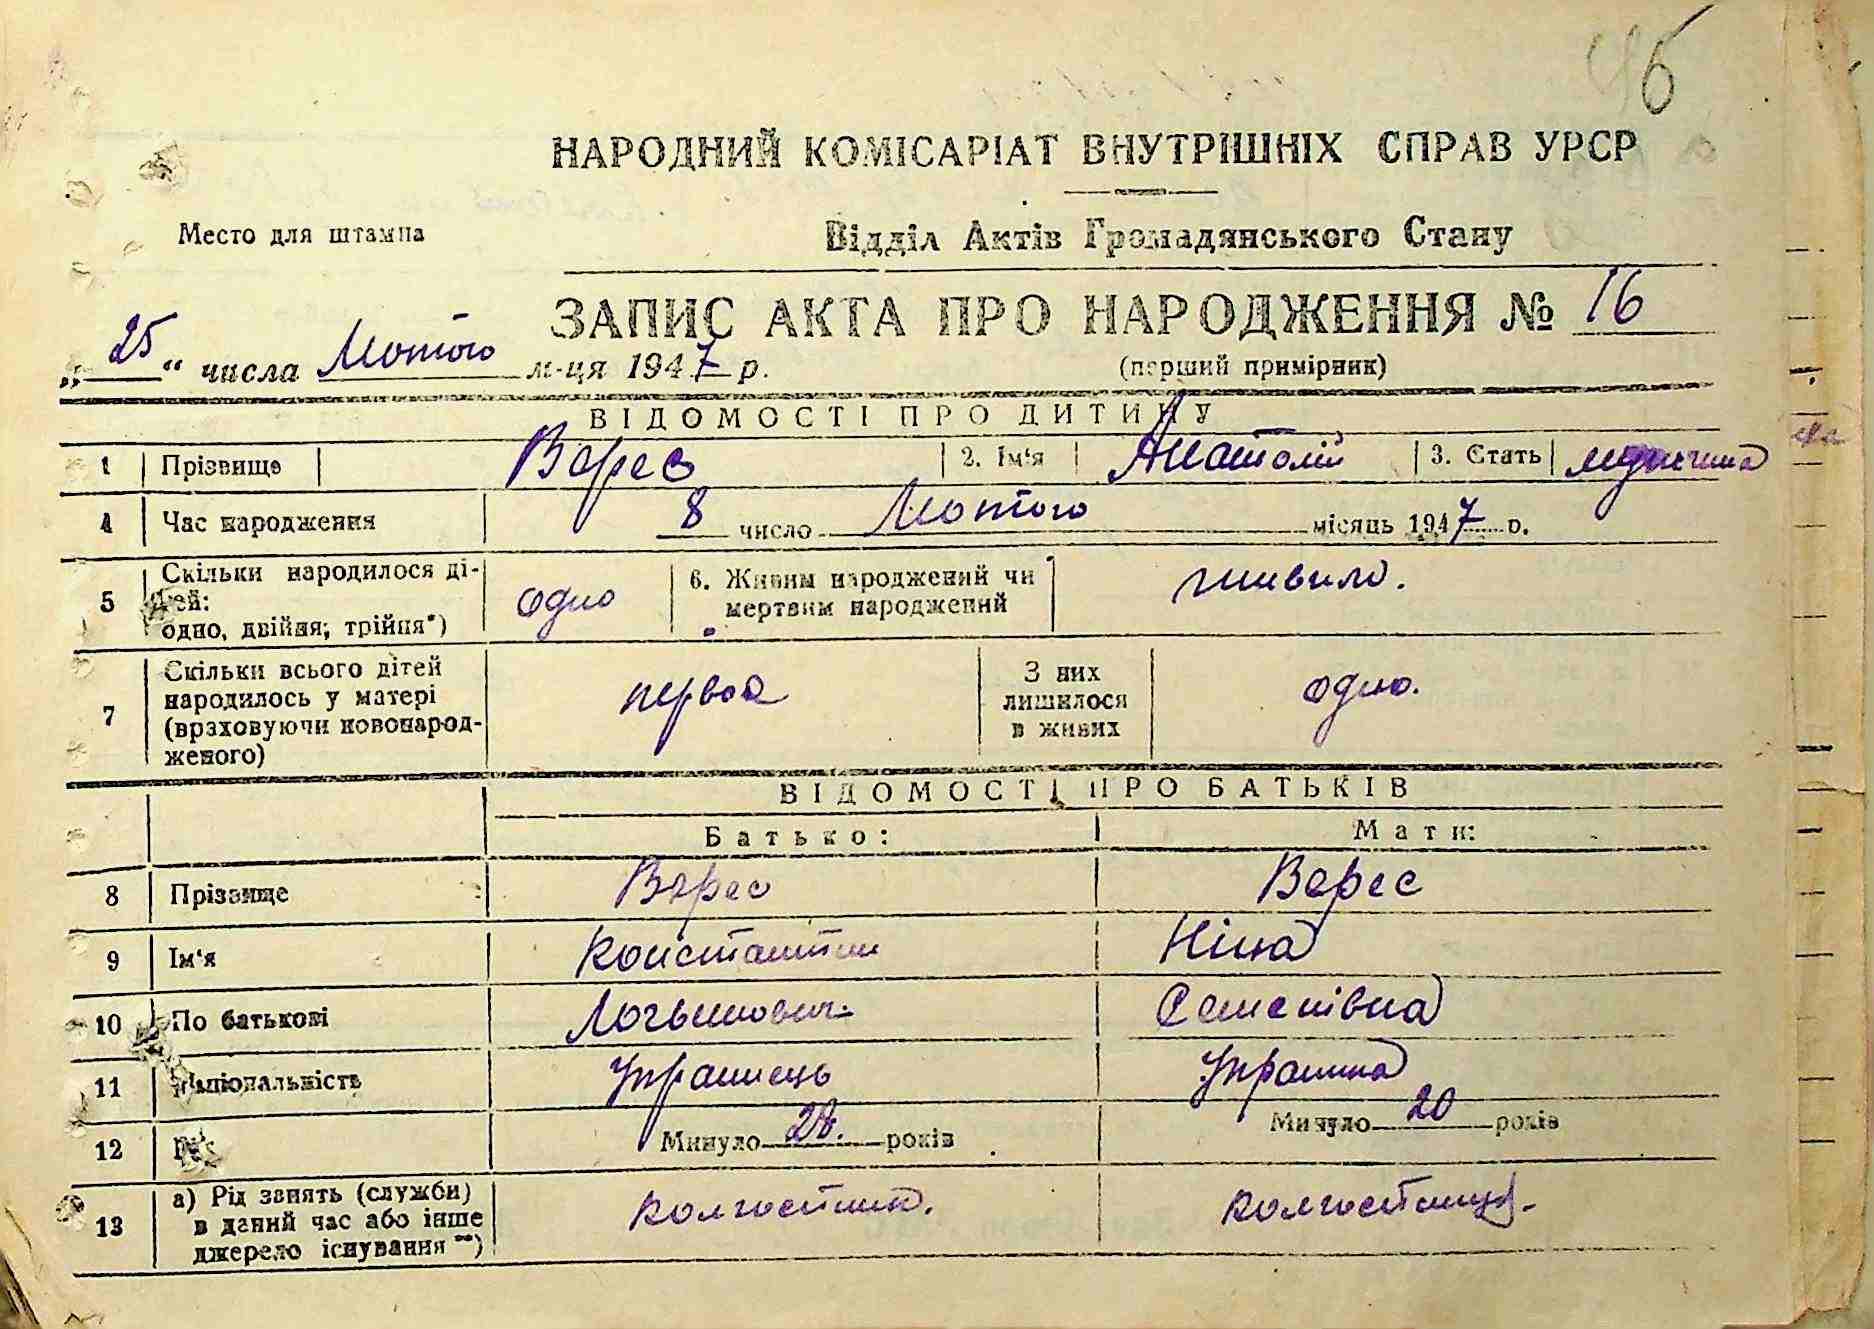 НАРОДНИЙ КОМІСАРІАТ ВНУТРІШНІХ СПРАВ УРСР
Место для штампа
Відділ Актів Громадянського Стану
ЗАПИС АКТА ПРО НАРОДЖЕННЯ № 16
„25“ числа Лютого м-ця 1947 р.
(перший примірник)
ВІДОМОСТІ ПРО ДИТИНУ
1 Прізвище Верес 2. Ім'я Анатолій 3. Стать мужчина
4 Час народження 8 число Лютого місяць 1947 р.
5 Скільки народилося ді-
тей:
одно, двійня; трійня*) одно 6. Живим народжений чи
мертвим народжений живим.
7 Скільки всього дітей
народилось у матері
(враховуючи новонарод-
женого) первоа З них
лишилося
в живих одно.
ВІДОМОСТІ ПРО БАТЬКІВ
Батько: Мати:
8 Прізвище Верес Верес
9 Ім'я Константин Ніна
10 По батькові Логвинович. Семенівна
11 Національність Українець Українка
12 Вік Минуло 28. років Минуло 20 років
13 а) Рід занять (служби)
в даний час або інше
джерело існування **) колгоспник. колгоспниця.